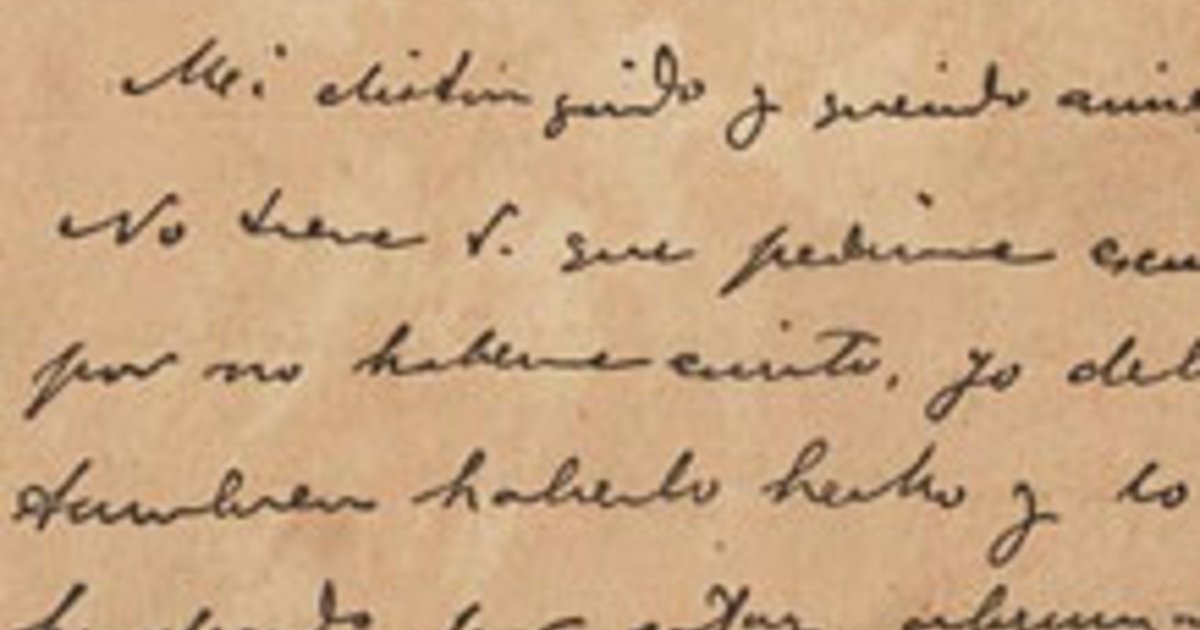 Mi distinguido y querido amig
No tiene V. que pedirme excu
por no haberme escrito, yo deb
tambien haberlo hecho y lo